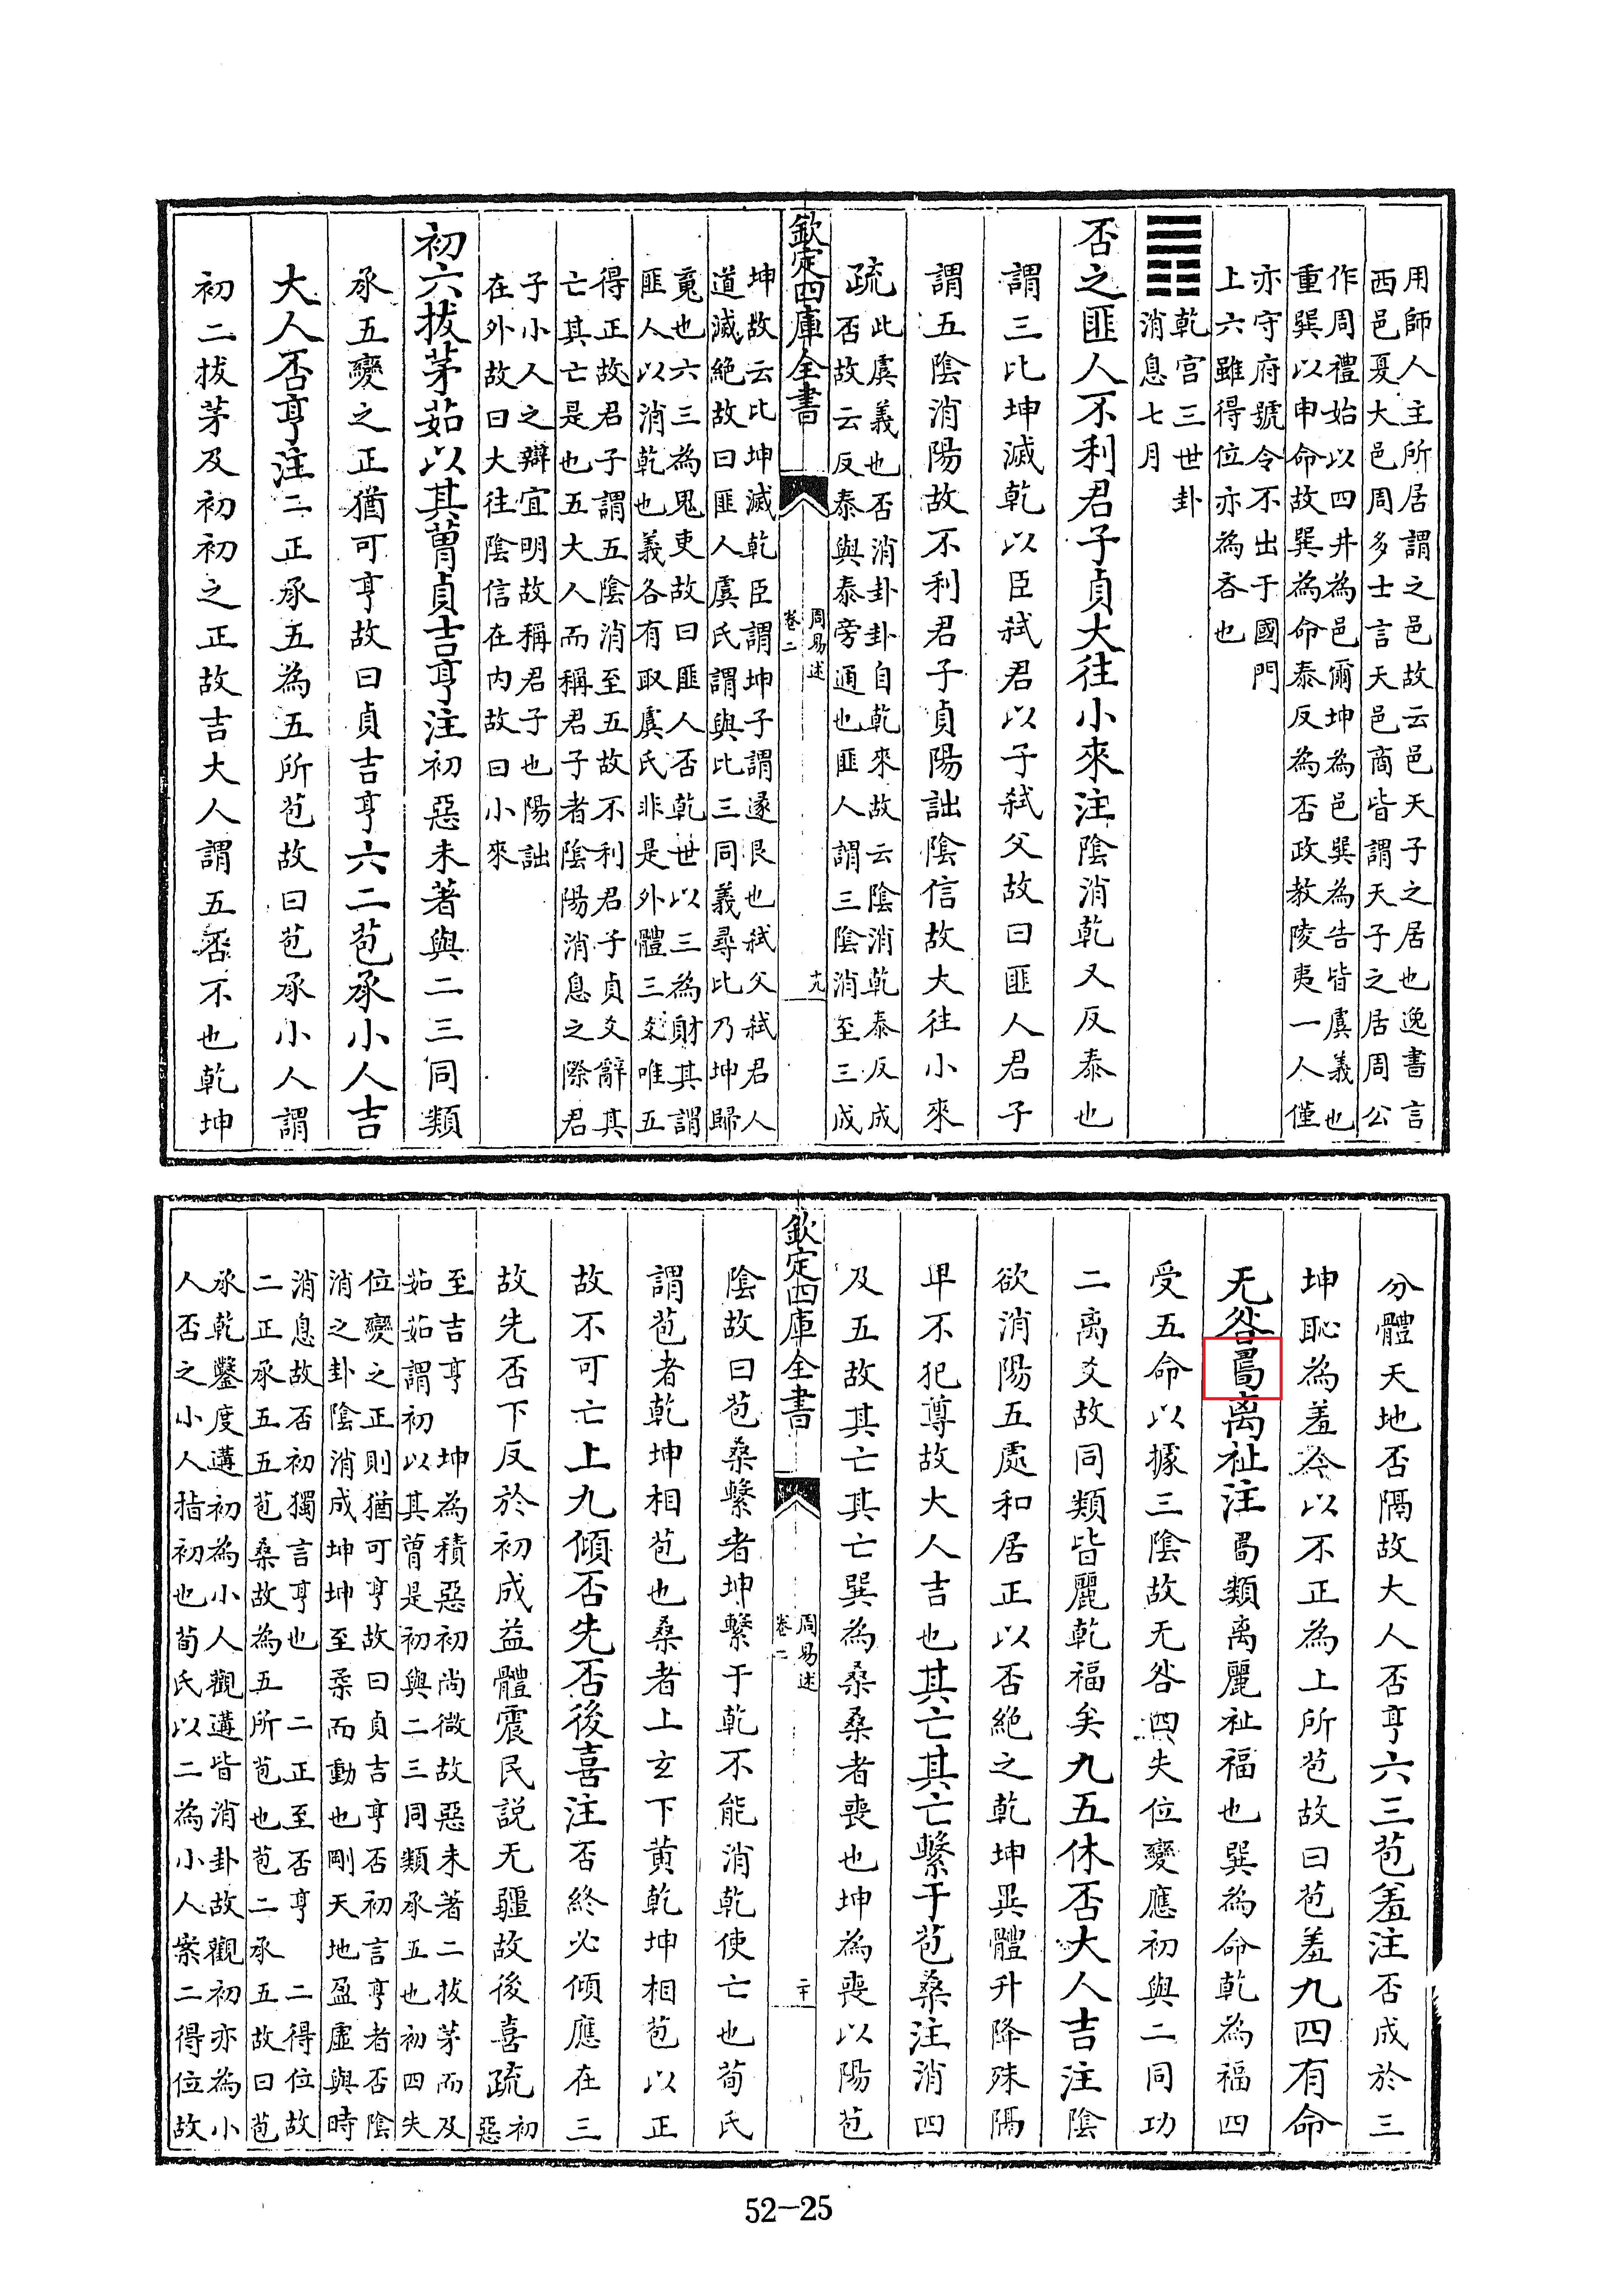 用師人主所居謂之邑故云邑天子之居也逸書言
西邑夏大邑周多士言天邑商皆謂天子之居周公
作周禮始以四井為邑爾坤為邑巽為告皆虞義也
重巽以申命故巽為命泰反為否政教陵夷一人僅
亦守府號令不出于國門
上六雖得位亦為吝也
䷋乾宮三世卦
消息七月
否之匪人不利君子貞大往小來注陰消乾又反泰也
謂三比坤滅乾以臣弑君以子弑父故曰匪人君子
謂五陰消陽故不利君子貞陽詘陰信故大往小來
疏此虞義也否消卦卦自乾來故云陰消乾泰反成
否故云反泰與泰旁通也匪人謂三陰消至三成
欽定四庫全書
周易述
卷二
十九
坤故云比坤滅乾臣謂坤子謂遂艮也弑父弑君人
道滅絶故曰匪人虞氏謂與比三同義尋比乃坤歸
䰟也六三為鬼吏故曰匪人否乾世以三為財其謂
匪人以消乾也義各有取虞氏非是外體三爻唯五
得正故君子謂五陰消至五故不利君子貞爻辭其
亡其亡是也五大人而稱君子者陰陽消息之際君
子小人之辯宜明故稱君子也陽詘
在外故曰大往陰信在内故曰小來
初六拔茅茹以其𦳢貞吉亨注初惡未著與二三同類
承五變之正猶可亨故曰貞吉亨六二苞承小人吉
大人否亨注二正承五為五所苞故曰苞承小人謂
初二拔茅及初初之正故吉大人謂五否不也乾坤
分體天地否隔故大人否亨六三苞羞注否成於三
坤恥為羞今以不正為上所苞故曰苞羞九四有命
无咎離祉注類離麗祉福也巽為命乾為福四
受五命以據三陰故无咎四失位變應初與二同功
二離爻故同類皆麗乾福矣九五休否大人吉注陰
欲消陽五處和居正以否絶之乾坤異體升降殊隔
卑不犯尊故大人吉也其亡其亡繫于苞桑注消四
及五故其亡其亡巽為桑桑者喪也坤為喪以陽苞
欽定四庫全書
周易述
卷二
二十
陰故曰苞桑繫者坤繫于乾不能消乾使亡也荀氏
謂苞者乾坤相苞也桑者上玄下黄乾坤相苞以正
故不可亡上九傾否先否後喜注否終必傾應在三
故先否下反於初成益體震民説无疆故後喜疏初
惡
至吉亨　坤為積惡初尚微故惡未著二拔茅而及
茹茹謂初以其𦳢是初與二三同類承五也初四失
位變之正則猶可亨故曰貞吉亨否初言亨者否陰
消之卦陰消成坤坤至柔而動也剛天地盈虛與時
消息故否初獨言亨也　二正至否亨　二得位故
二正承五五苞桑故為五所苞也苞二承五故曰苞
承乾鑿度遘初為小人觀遘皆消卦故觀初亦為小
人否之小人指初也荀氏以二為小人案二得位故
52—25